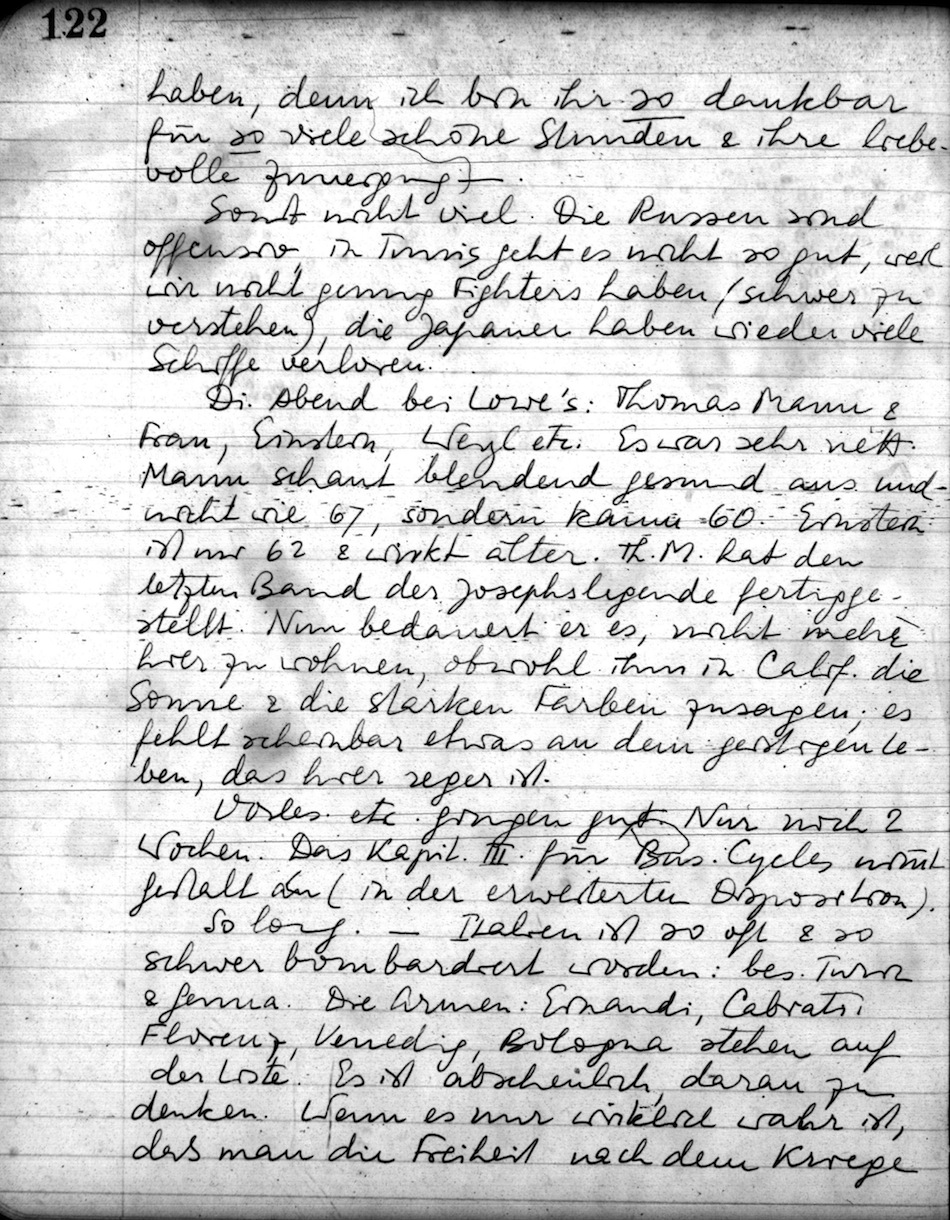 122
haben, denn ich bin ihr so dankbar
für so viele schöne Stunden & ihre liebe-
volle Zuneigung.
Sonst nicht viel. Die Russen sind
offensiv, in Tunis geht es nicht so gut, weil
wir nicht genug Fighters haben (schwer zu
verstehen), die Japaner haben wieder viele
Schiffe verloren.
Di. Abend bei Lowe's: Thomas Mann &
Frau, Einstein, Weyl etc. Es war sehr nett.
Mann schaut blendend gesund aus und
nicht wie 67, sondern kaum 60. Einstein
ist nur 62 & wirkt älter. Th. M. hat den
letzten Band der Josephslegende fertigge-
stellt. Nun bedauert er es, nicht mehr
hier zu wohnen, obwohl ihm in Calif. die
Sonne & die starken Farben zusagen; es
fehlt scheinbar etwas an dem geistigen Le-
ben, das hier reger ist.
Vorles. etc. gingen gut. Nur noch 2
Wochen. Das Kapit. III. für Bus. Cycles nimmt
Gestalt an (in der erweiterten Disposition).
So long. — Italien ist so oft & so
schwer bombardiert worden: bes. Turin
& Genua. Die Armen: Einaudi, Cabiati.
Florenz, Venedig, Bologna stehen auf
der Liste. Es ist abscheulich, daran zu
denken. Wenn es nur wirklich wahr ist,
dass man die Freiheit nach dem Kriege